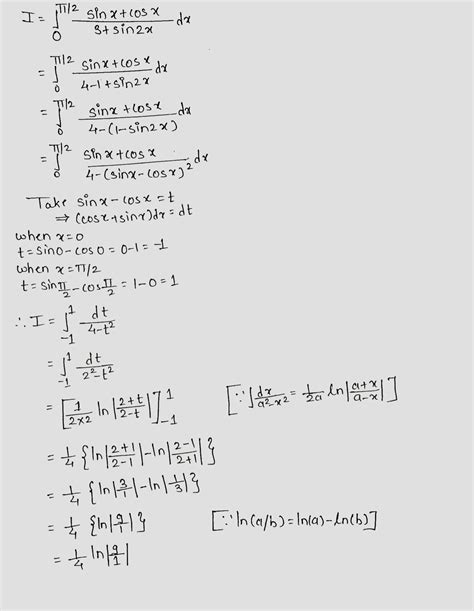 I = ∫₀^{π/2} (sinx + cosx)/(3 + sin2x) dx
= ∫₀^{π/2} (sinx + cosx)/(4-1+sin2x) dx
= ∫₀^{π/2} (sinx + cosx)/(4-(1-sin2x)) dx
= ∫₀^{π/2} (sinx + cosx)/(4-(sinx-cosx)²) dx
Take sinx - cosx = t
⇒ (cosx + sinx)dx = dt
when x=0
t = sin0 - cos0 = 0-1 = -1
when x = π/2
t = sin π/2 - cos π/2 = 1-0 = 1
∴ I = ∫₋₁^1 dt/(4-t²)
= ∫₋₁^1 dt/(2²-t²)
= [1/(2×2) ln|(2+t)/(2-t)|]₋₁^1 [∵ ∫ dx/(a²-x²) = 1/2a ln|(a+x)/(a-x)|]
= 1/4 {ln|(2+1)/(2-1)| - ln|(2-1)/(2+1)|}
= 1/4 {ln|3/1| - ln|1/3|}
= 1/4 {ln|9/1|} [∵ ln(a/b) = ln(a) - ln(b)]
= 1/4 ln|9/1|